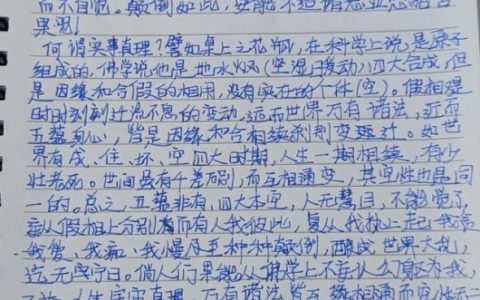 而不自觉。颠倒如此，安能不造诸恶业恶结苦
果呢！
何谓实事真理？譬如桌上之花瓶，在科学上说是原子
组成的，佛学说他是地水火风（坚湿暖动）四大合成，但
是因缘和合假的相用，没有实在的个体（空）。值相理
时时刻刻迁流不息的变动，远而世界万有诸法，近而
五蕴身心，皆是因缘和合相续刹刹变迁。如世
界有成、住、坏、空四大时期，人生一期相续，有少
壮老死。世间虽有千差万别，而互相通变，其空性也是同
一的。总之，五蕴非有，四大本空，人无慧目，不能觉了
妄从假相上分别为而有人我彼此，复从我执上起我贪
我爱、我痴、我慢乃至种种颠倒，酿成世界大乱，
迄无宁日。倘人们果能从佛学上来认
人生宇宙真理，万有诸法皆互缘相通而空性不二